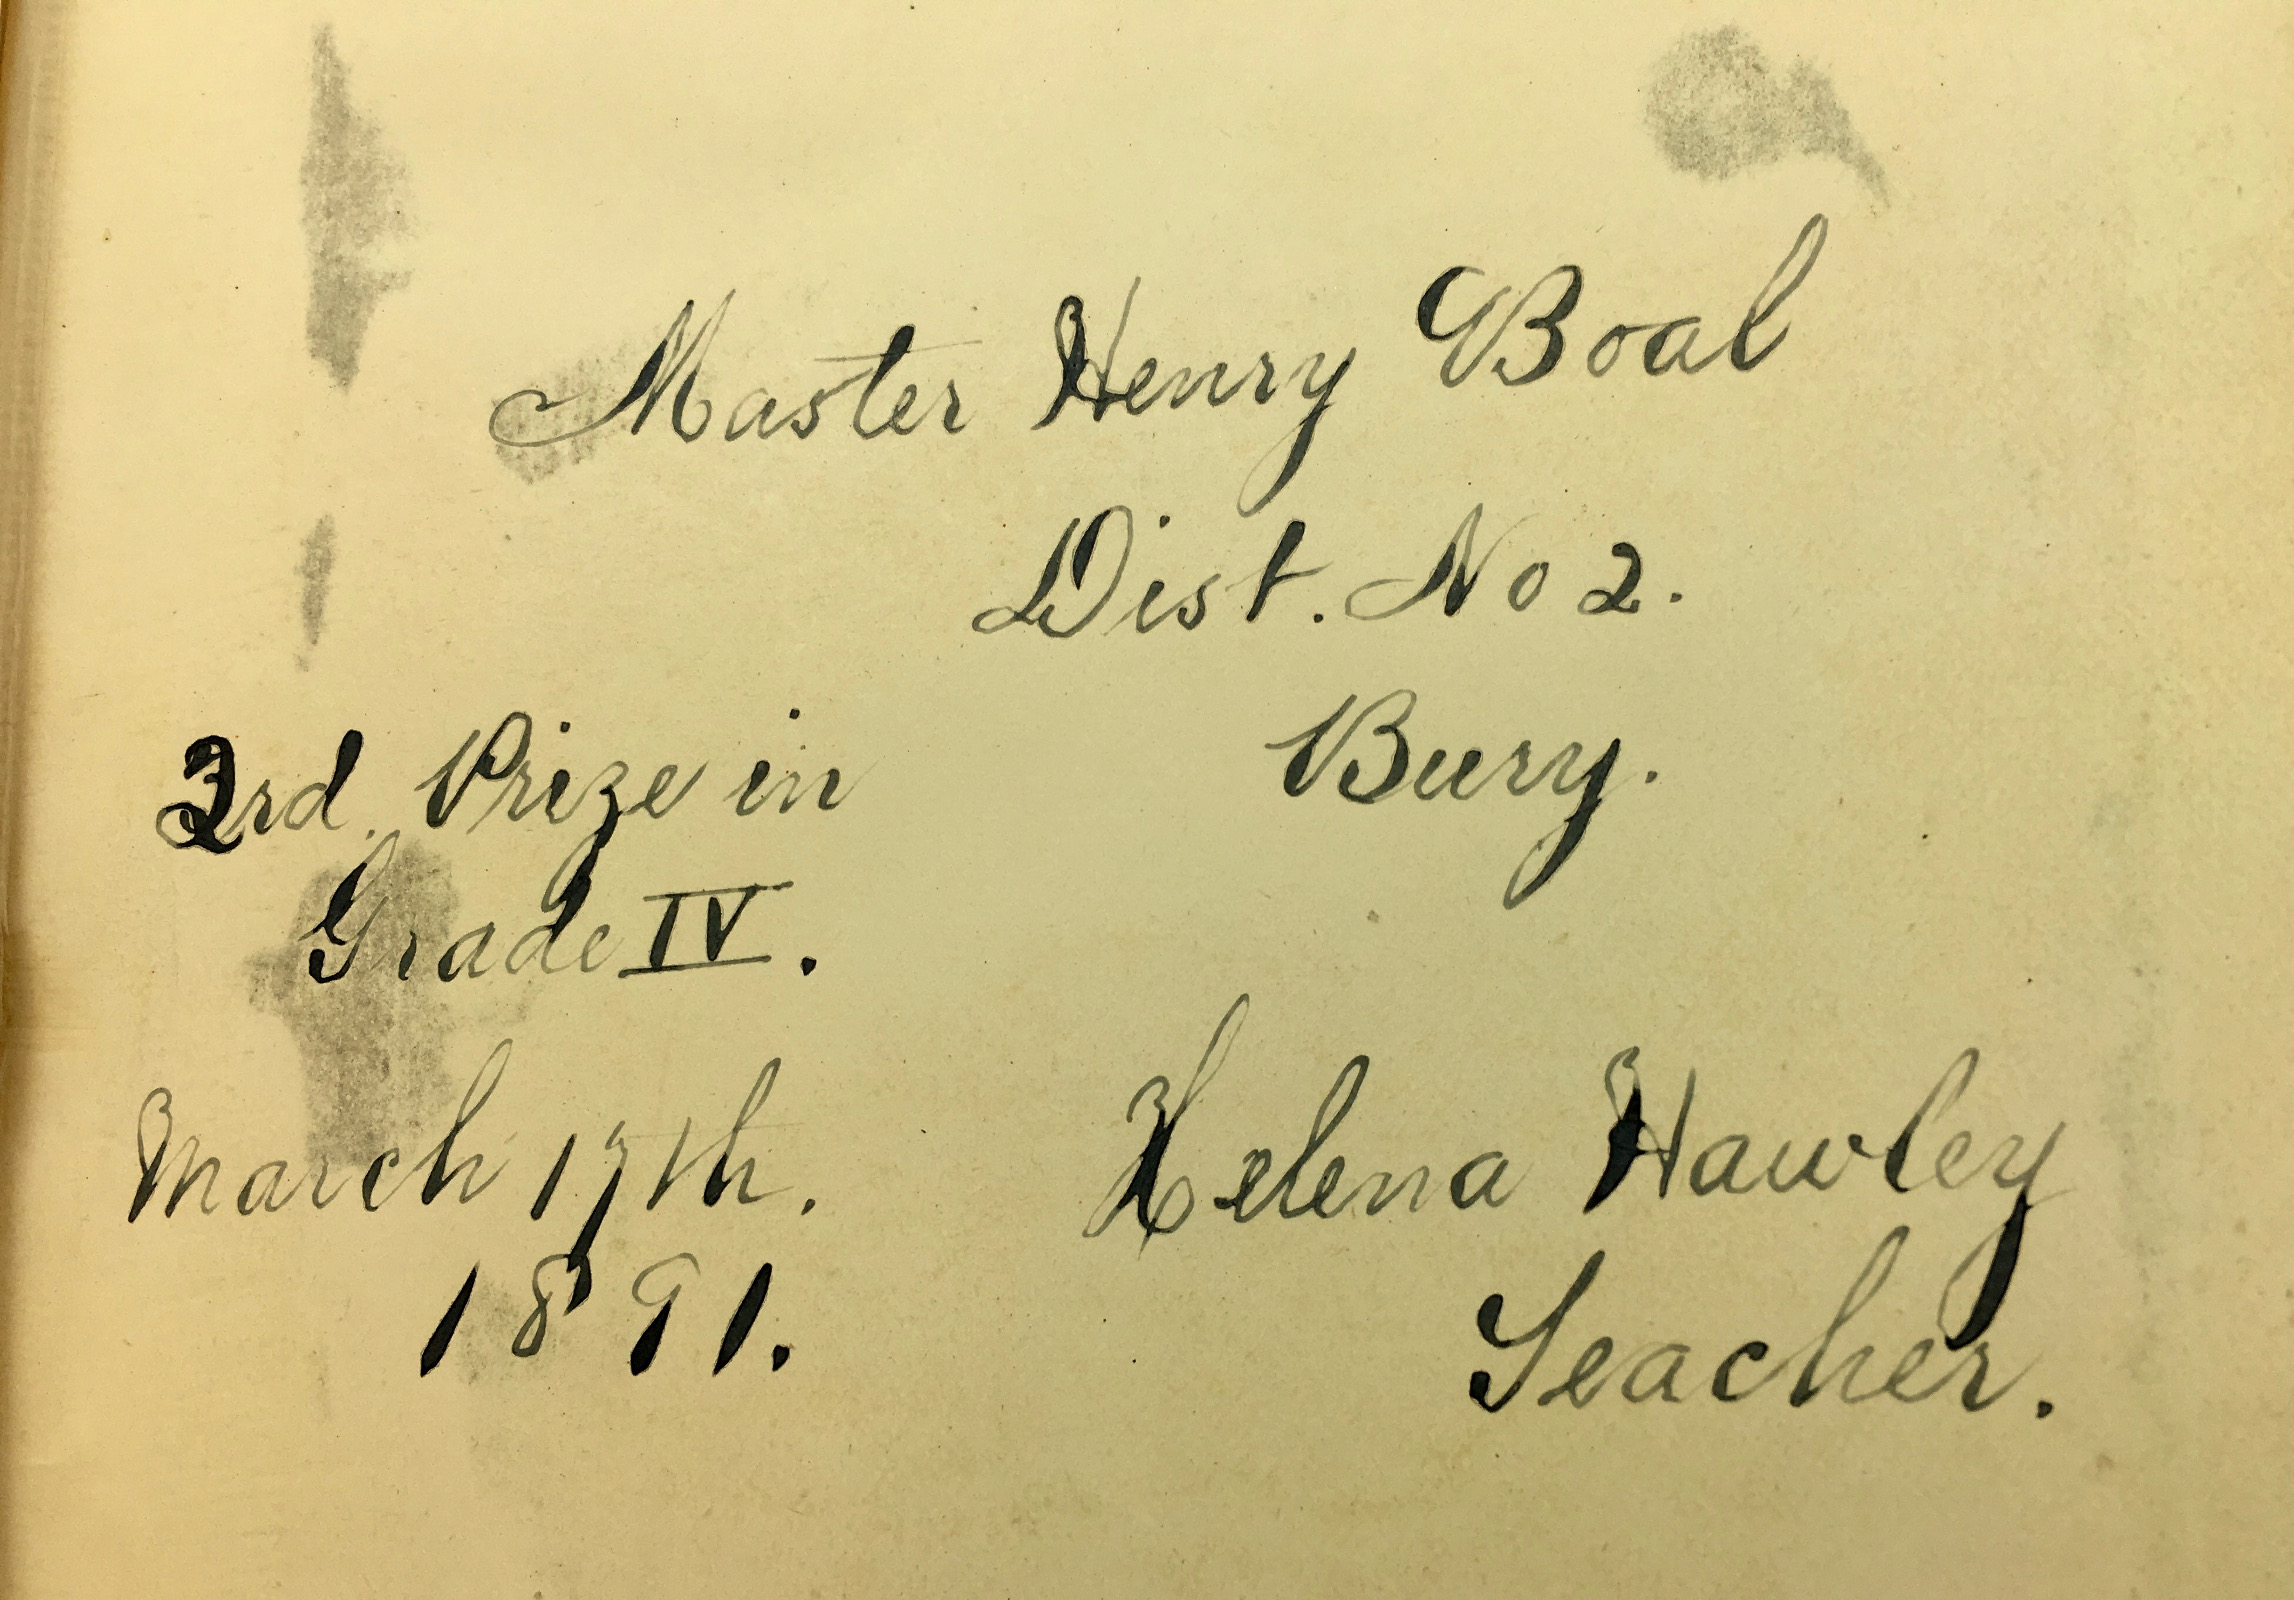 Master Henry Boal
Dist. No 2.
Bury.
3rd. Prize in
Grade IV.
March 17th.
1891.
Helena Hawley
Teacher.